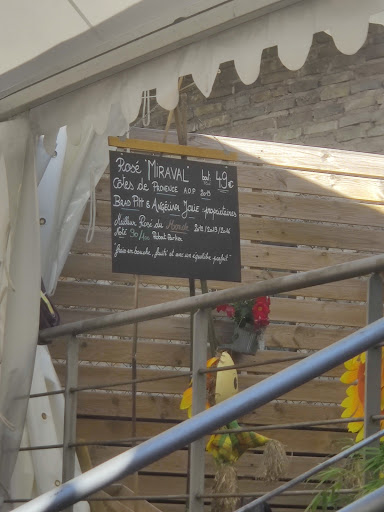 Rosé "MIRAVAL" bout 49€
Côtes de PROVENCE A.O.P 2018
BRAD PITT & ANGELINA Jolie propriétaires
Meilleur Rosé du Monde 2012/2013/2016
Note 90/100 Robert Parker
"frais en bouche, fruité et avec un équilibre parfait"